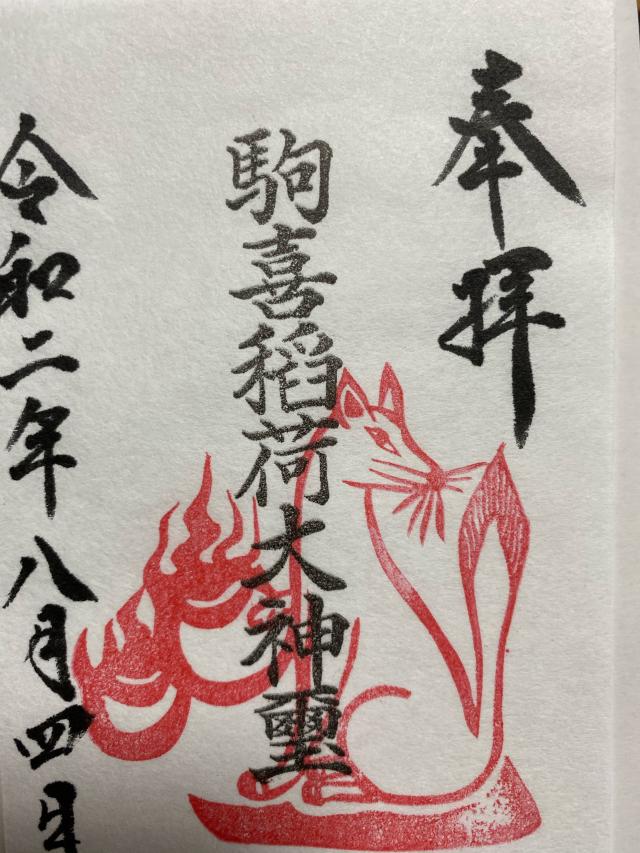 奉拝
駒喜稲荷大神璽
令和二年八月四日